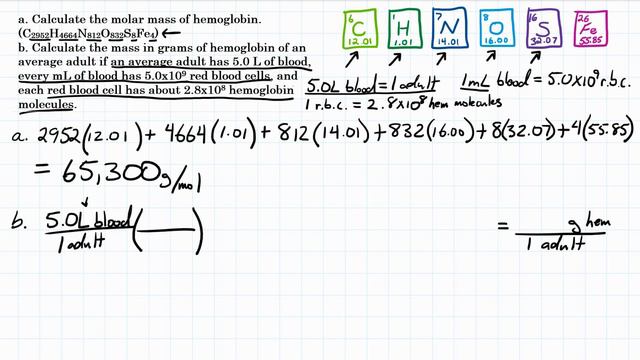 a. Calculate the molar mass of hemoglobin.
(C2952H4664N812O832S8Fe4) ←
b. Calculate the mass in grams of hemoglobin of an
average adult if an average adult has 5.0 L of blood,
every mL of blood has 5.0x10⁹ red blood cells, and
each red blood cell has about 2.8x10⁸ hemoglobin
molecules.
6 C 12.01
1 H 1.01
7 N 14.01
8 O 16.00
16 S 32.07
26 Fe 55.85
5.0L blood = 1 adult
1mL blood = 5.0x10⁹ r.b.c.
1 r.b.c. = 2.8x10⁸ hem molecules
a. 2952(12.01) + 4664(1.01) + 812(14.01) + 832(16.00) + 8(32.07) + 4(55.85)
= 65,300 g/mol
b. 5.0L blood / 1 adult (——) = g hem / 1 adult